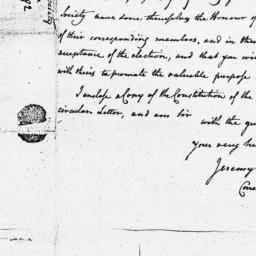 Society have done themselves the Honour of
of their corresponding members, and in the
acceptance of the election, and that you wi
with theirs to promote the valuable purpose
I enclose a Copy of the Constitution of the
circular Letter, and am Sir
with the gre
your very hu
Jeremy
Corre
Society